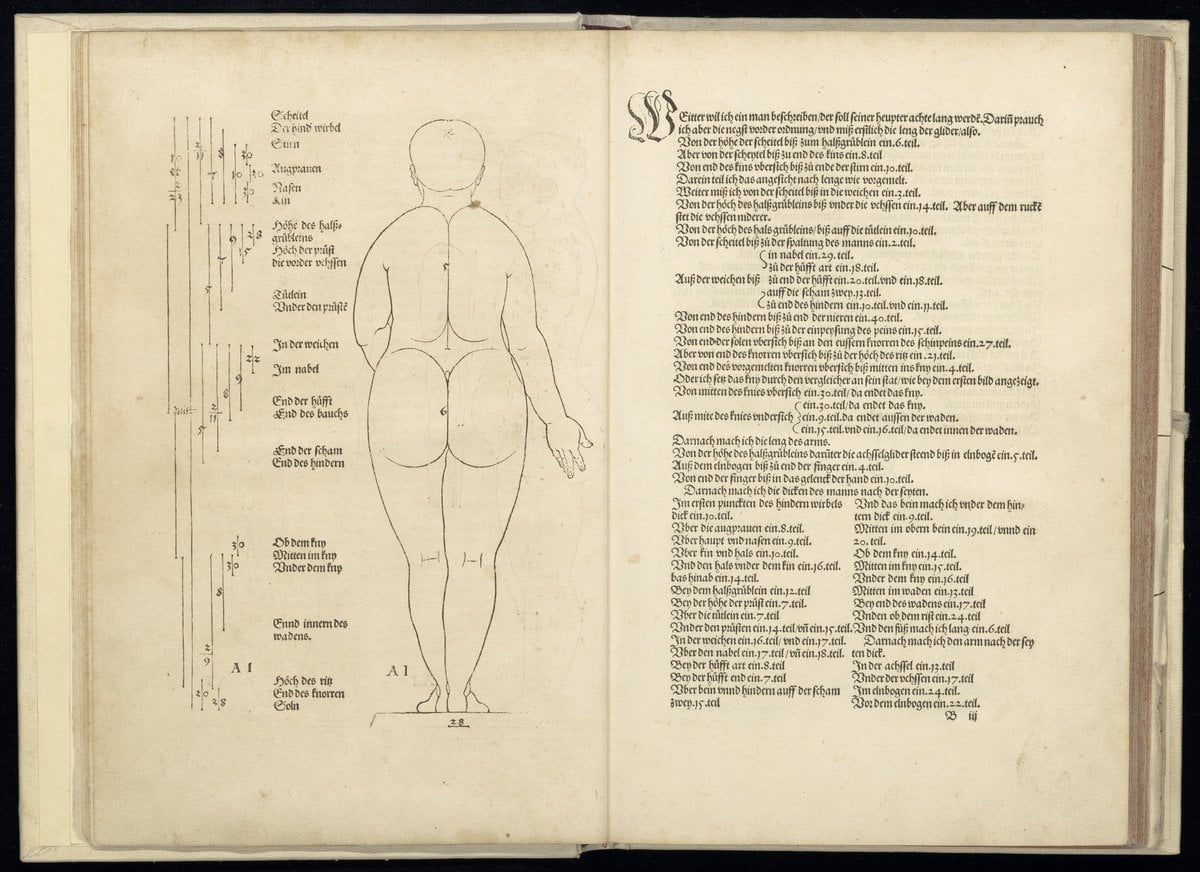 Scheitel
Der hind wirbel
Stirn
Augprauen
Nasen
Kin
Höhe des halß-
grübleins
Höch der prüst
die vorder vchssen
Tütlein
Vnder den prüstē
In der weichen
Im nabel
End der hüfft
End des bauchs
End der scham
End des hindern
Ob dem kny
Mitten im kny
Vnder dem kny
Ennd innern des
wadens.
Höch des ritz
End des knorren
Soln
A I
A I
5
6
28
WEitter wil ich ein man beschreiben/der soll seiner heupter achte lang werdē. Dariñ prauch
ich aber die negst vorder ordnung/vnd miß erstlich die leng der glider/also.
Von der höhe der scheitel biß zum halßgrüblein ein.6.teil.
Aber von der scheytel biß zu end des kins ein.8.teil
Von end des kins vbersich biß zů ende der stirn ein.10.teil.
Darein teil ich das angesicht nach lenge wie vorgemelt.
Weiter miß ich von der scheitel biß in die weichen ein.3.teil.
Von der höch des halßgrübleins biß vnder die vchssen ein.14.teil. Aber auff dem ruckē
stet die vchssen niderer.
Von der höch des hals grübleins/biß auff die tütlein ein.10.teil.
Von der scheitel biß zů der spaltung des manns ein.2.teil.
in nabel ein.29.teil.
zů der hüfft art ein.18.teil.
Auß der weichen biß zů end der hüfft ein.20.teil.vnd ein.18.teil.
auff die scham zwey.13.teil.
zů end des hindern ein.10.teil.vnd ein.11.teil.
Von end des hindern biß zů end der nieren ein.40.teil.
Von end des hindern biß zů der einpeysung des peins ein.15.teil.
Von end der solen vbersich biß an den eussern knorren des schinpeins ein.27.teil.
Aber von end des knorren vbersich biß zů der höch des ritz ein.21.teil.
Von end des vorgemelten knorren vbersich biß mitten ins kny ein.4.teil.
Oder ich setz das kny durch den vergleicher an sein stat/wie bey dem ersten bild angezeigt.
Von mitten des knies vbersich ein.30.teil/da endet das kny.
ein.30.teil/da endet das kny.
Auß mite des knies vndersich ein.9.teil.da endet aussen der waden.
ein.15.teil.vnd ein.16.teil/da endet innen der waden.
Darnach mach ich die leng des arms.
Von der höhe des halßgrübleins darüter die achsselglider steend biß in elnbogē ein.5.teil.
Auß dem elnbogen biß zů end der finger ein.4.teil.
Von end der finger biß in das gelenck der hand ein.10.teil.
Darnach mach ich die dicken des manns nach der seyten.
Im ersten puncktē des hindern wirbels
dick ein.10.teil.
Vber die augprauen ein.8.teil.
Vber haupt vnd nasen ein.9.teil.
Vber kin vnd hals ein.10.teil.
Vnd den hals vnder dem kin ein.16.teil.
bas hinab ein.14.teil.
Bey dem halßgrüblein ein.12.teil
Bey der höhe der prüst ein.7.teil.
Vber die tütlein ein.7.teil
Vnder den prüsten ein.14.teil/vñ ein.15.teil.
In der weichen ein.16.teil/vnd ein.17.teil.
Vber den nabel ein.17.teil/vñ ein.18.teil.
Bey der hüfft art ein.8.teil
Bey der hüfft end ein.7.teil
Vber bein vnnd hindern auff der scham
zwey.15.teil
Vnd das bein mach ich vnder dem hin-
tern dick ein.9.teil.
Mitten im obern bein ein.19.teil/vnnd ein
20.teil.
Ob dem kny ein.14.teil.
Mitten im kny ein.15.teil.
Vnder dem kny ein.16.teil
Mitten im waden ein.13.teil
Bey end des wadens ein.17.teil
Vnden ob dem rist ein.24.teil.
Vnd den fůß mach ich lang ein.6.teil
Darnach mach ich den arm nach der sey
ten dick.
In der achssel ein.13.teil
Vnder der vchssen ein.17.teil
Im elnbogen ein.24.teil.
Vor dem elnbogen ein.22.teil.
B iij